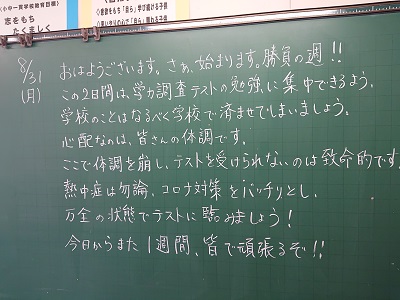 (小中一貫学校教育目標)
志をもち
たくましく
「自ら」学び続ける子供
8/31
(月)
おはようございます。さぁ、始まります。勝負の週!!
この2日間は、学力調査テストの勉強に集中できるよう、
学校のことはなるべく学校で済ませてしまいましょう。
心配なのは、皆さんの体調です。
ここで体調を崩し、テストを受けられないのは致命的です。
熱中症は勿論、コロナ対策をバッチリとし、
万全の状態でテストに臨みましょう!
今日からまた1週間、皆で頑張るぞ!!